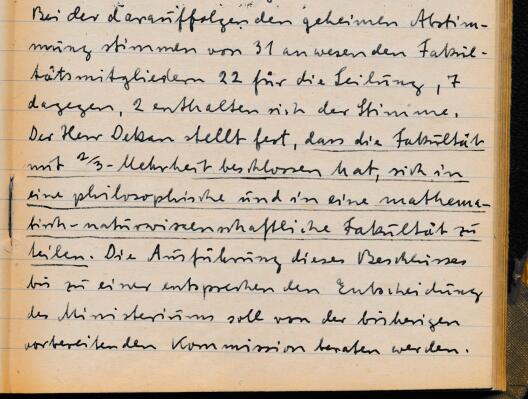 Bei der darauffolgenden geheimen Abstim-
mung stimmen von 31 anwesenden Fakul-
tätsmitgliedern 22 für die Teilung, 7
dagegen, 2 enthalten sich der Stimme.
Der Herr Dekan stellt fest, dass die Fakultät
mit 2/3-Mehrheit beschlossen hat, sich in
eine philosophische und in eine mathema-
tisch-naturwissenschaftliche Fakultät zu
teilen. Die Ausführung dieses Beschlusses
bis zu einer entsprechenden Entscheidung
des Ministeriums soll von der bisherigen
vorbereitenden Kommission beraten werden.